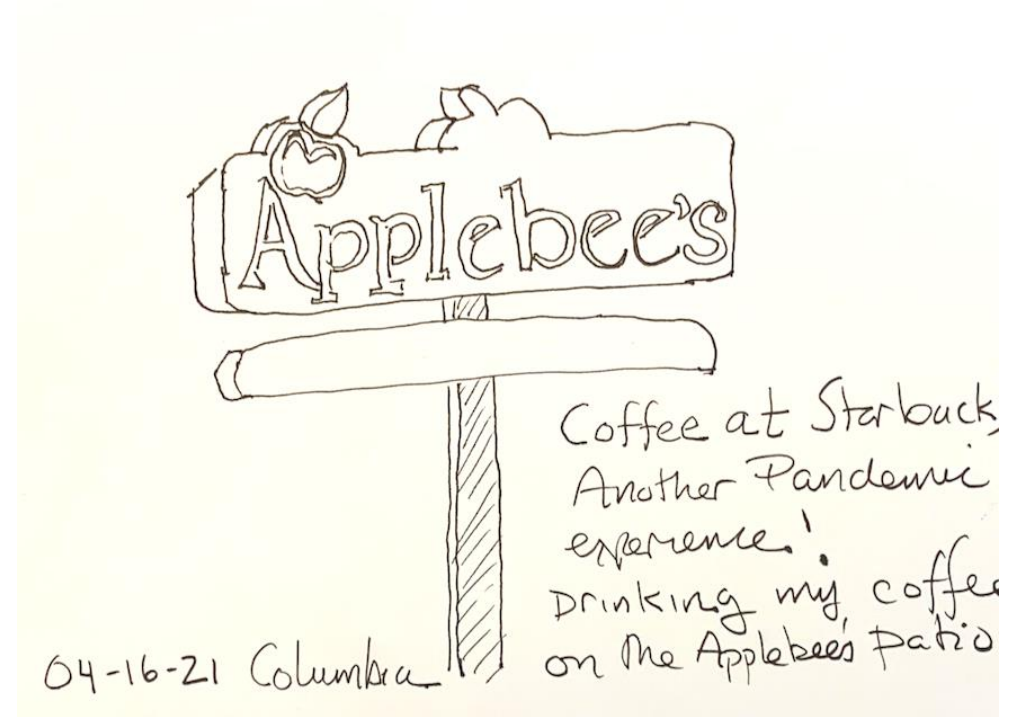 Applebee's
Coffee at Starbuck
Another Pandemic
experience!
Drinking my coffee
on the Applebee's patio
04-16-21 Columbia